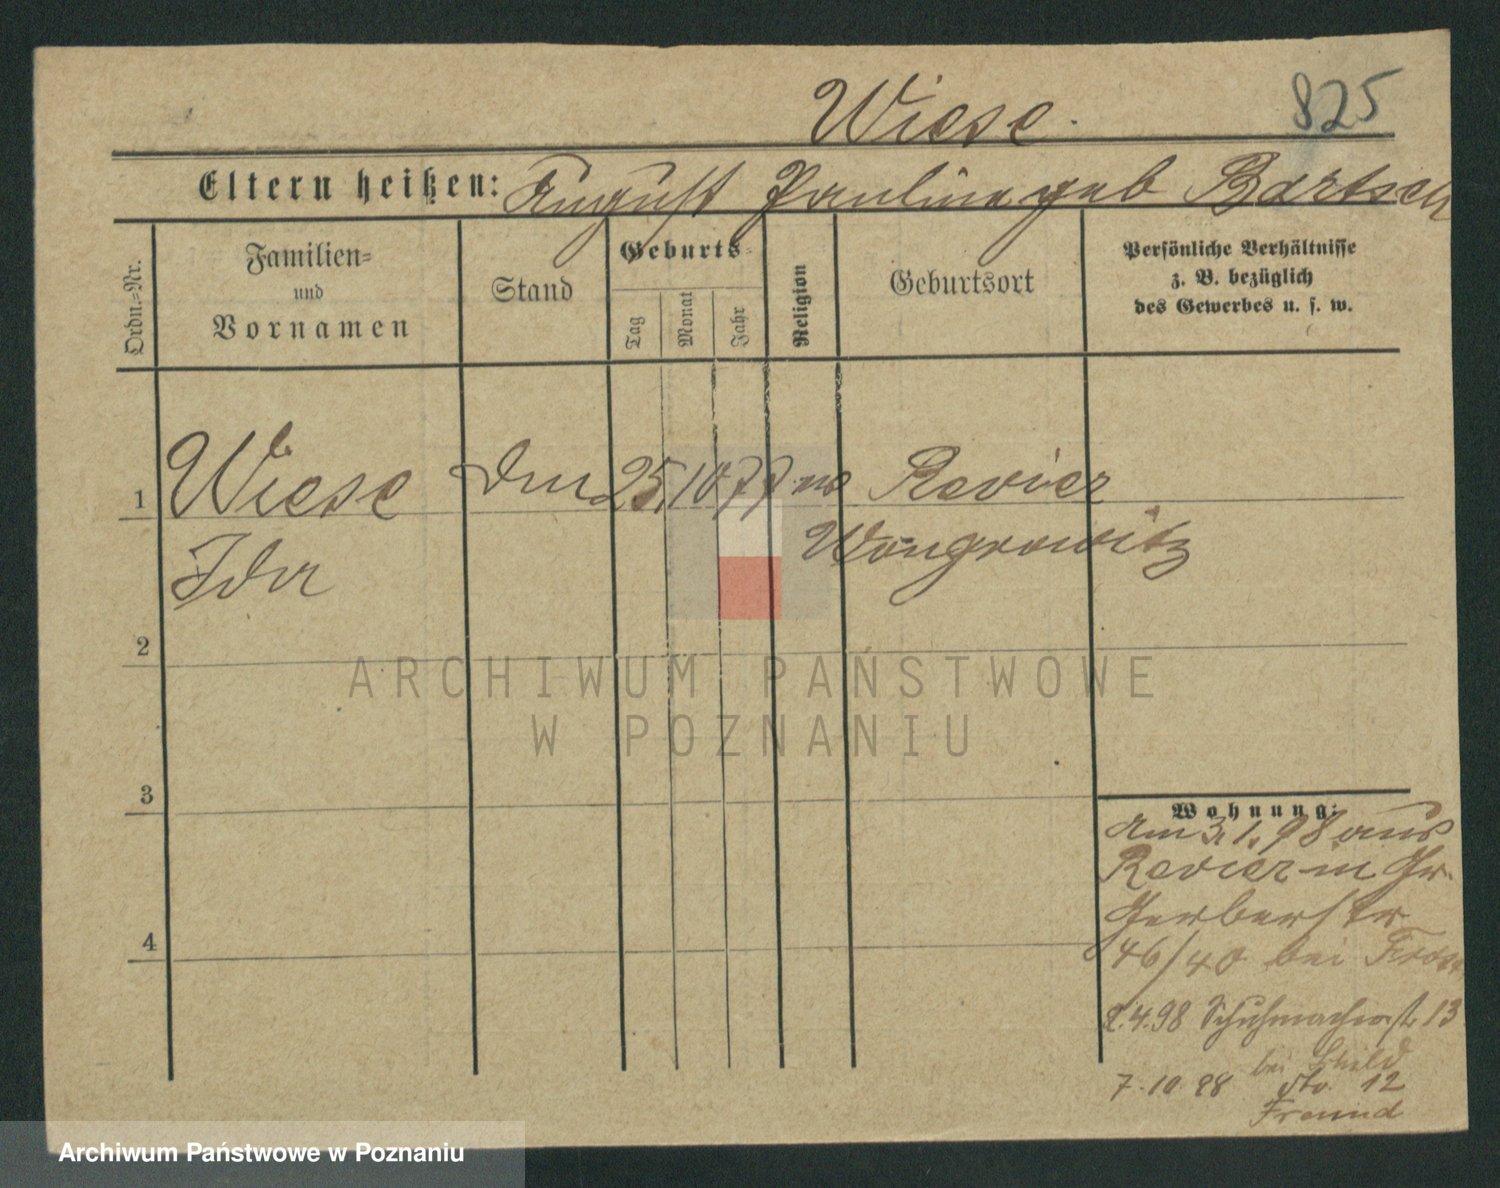 Wiese.
825
Eltern heißen: August Pauline geb Bartsch
Ordn.=Nr.
Familien=
und
Vornamen
Stand
Geburts=
Tag
Monat
Jahr
Religion
Geburtsort
Persönliche Verhältnisse
z. B. bezüglich
des Gewerbes u. s. w.
1 Wiese 25. 10 77 Revier
Ida Wongrowitz
2
3
4
Wohnung:
Am 3. 1. 98 aus
Revier in Gr.
Gerberstr
46/40 bei
2. 4. 98 Schuhmacherstr 13
bei Schild
7. 10. 98 12
Freund
ARCHIWUM PAŃSTWOWE
W POZNANIU
Archiwum Państwowe w Poznaniu